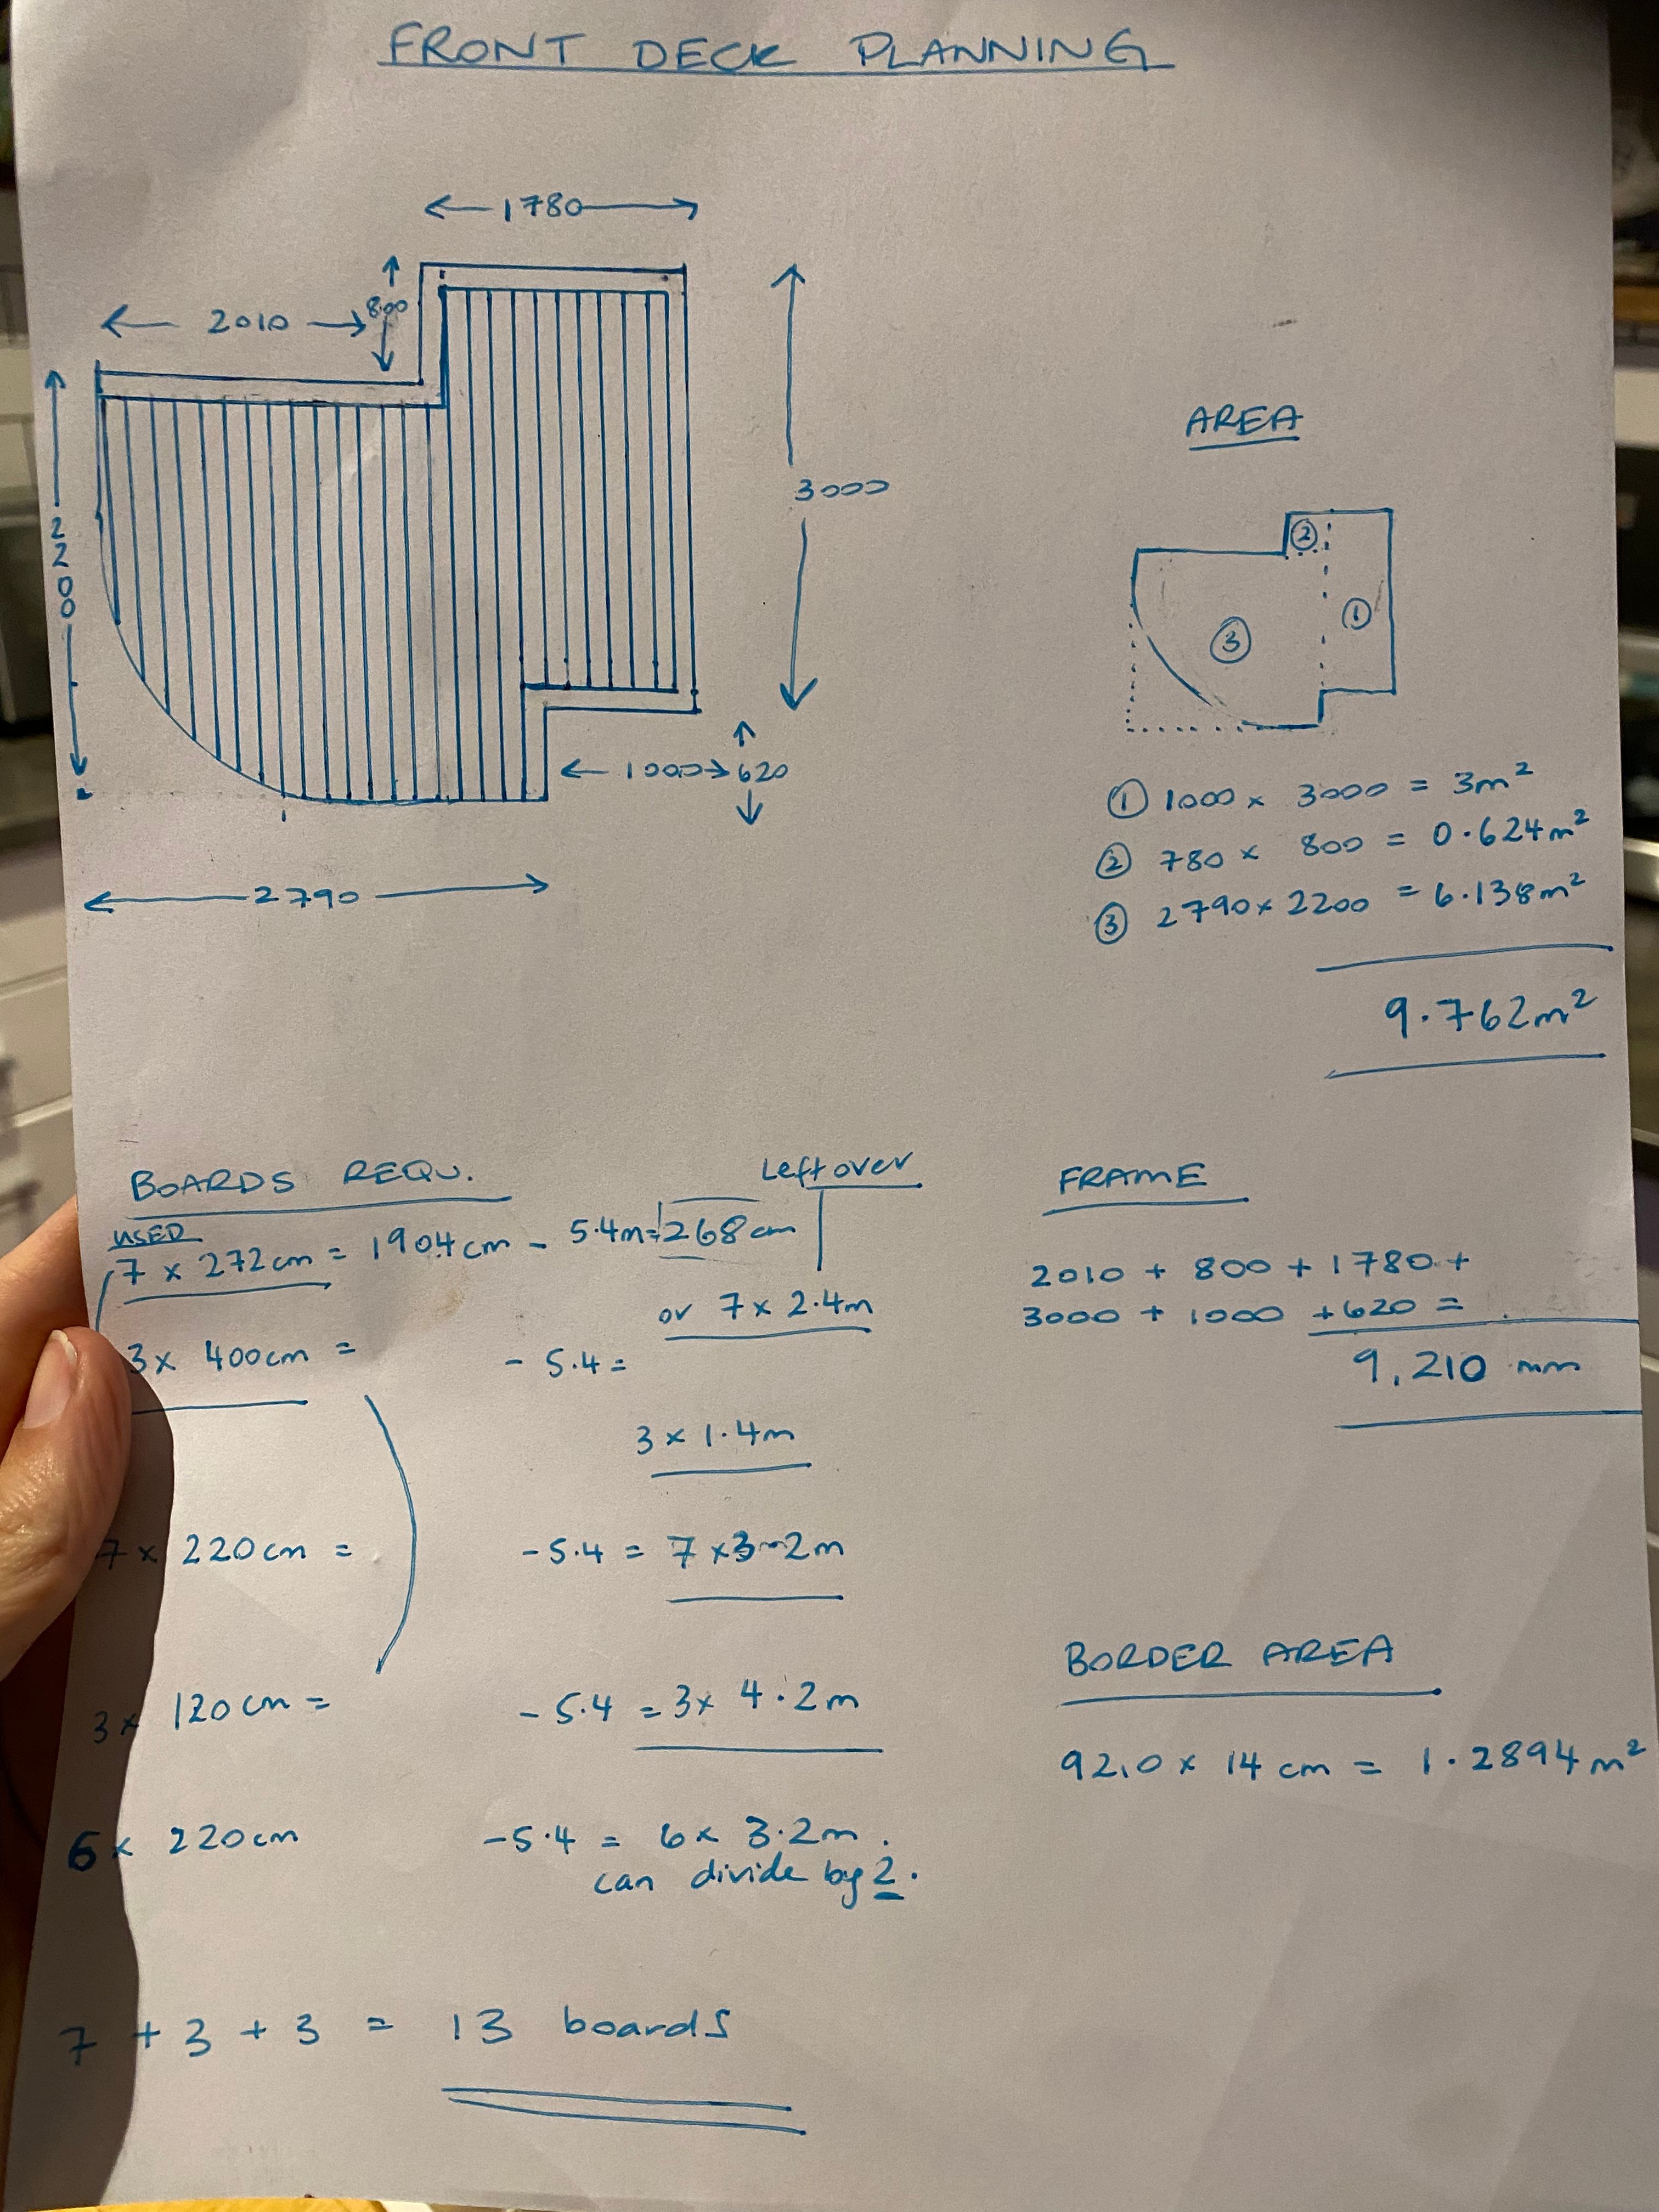 FRONT DECK PLANNING
1780
2010
800
2200
3000
1000
620
2790
AREA
2
3
1
1 1000 x 3000 = 3m²
2 780 x 800 = 0.624m²
3 2790 x 2200 = 6.138m²
9.762m²
BOARDS REQU.
Leftover
USED
7 x 272cm = 1904cm - 5.4m = 268cm
or 7 x 2.4m
3x 400cm = - 5.4 =
3 x 1.4m
7 x 220cm = -5.4 = 7 x 3.2m
3 x 120cm = - 5.4 = 3x 4.2m
6 x 220cm -5.4 = 6x 3.2m.
can divide by 2.
7 + 3 + 3 = 13 boards
FRAME
2010 + 800 + 1780 +
3000 + 1000 + 620 =
9,210 mm
BORDER AREA
92.0 x 14 cm = 1.2894m²